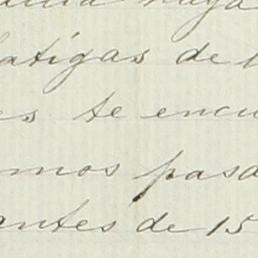 fatigas de l
es te encu
mos pasa
antes de 15